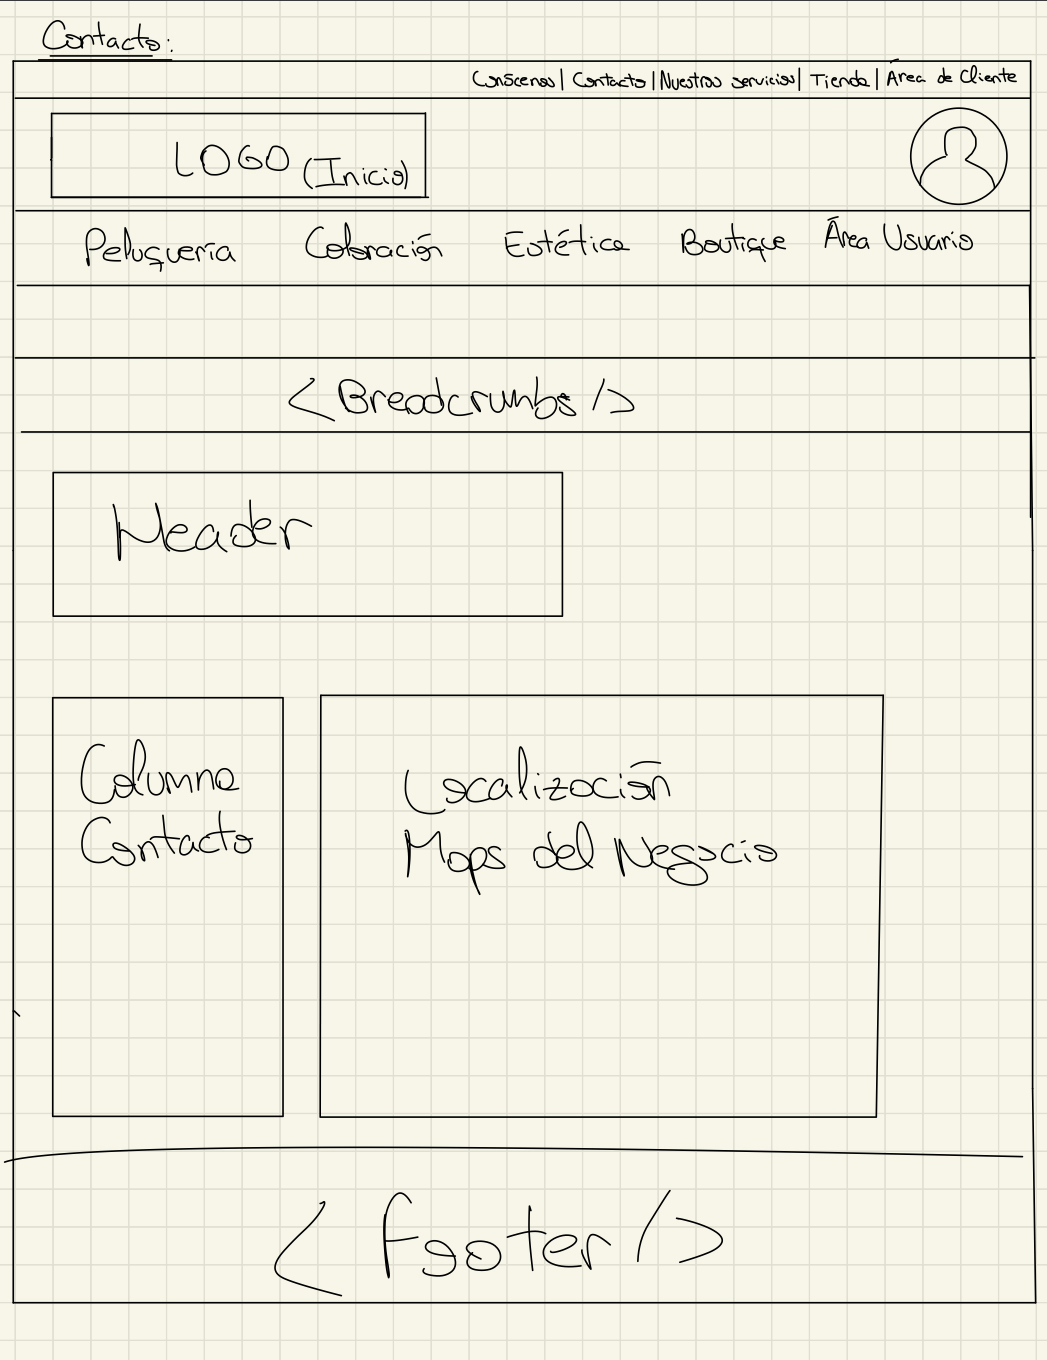 Contacto:
Conócenos | Contacto | Nuestros servicios | Tienda | Área de Cliente
LOGO (Inicio)
Peluquería Coloración Estética Boutique Área Usuario
< Breadcrumbs />
Header
Columna
Contacto
Localización
Maps del Negocio
< Footer />